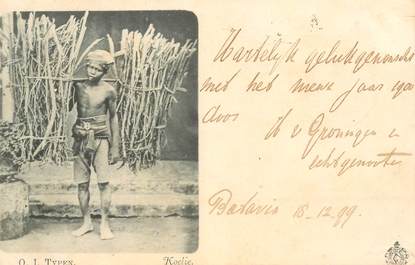 Hartelijk gelukgewenscht
met het nieuwe jaar 1900
door H v Groningen en
echtgenoote
Batavia 18-12.99.
O. I. TYPEN. Koelie.